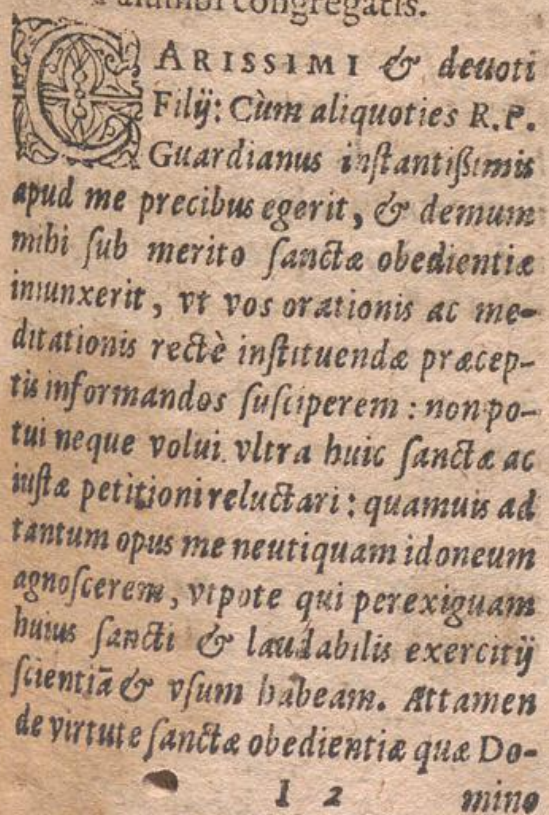 congregatis.
CARISSIMI & deuoti
Filij: Cùm aliquoties R.P.
Guardianus instantißimis
apud me precibus egerit, & demum
mihi sub merito sanctæ obedientiæ
iniunxerit, vt vos orationis ac me-
ditationis rectè instituendæ præcep-
tis informandos susciperem: non po-
tui neque volui vltra huic sanctæ ac
iustæ petitioni reluctari: quamuis ad
tantum opus me neutiquam idoneum
agnoscerem, vtpote qui perexiguam
huius sancti & laudabilis exercitij
scientiã & vsum habeam. Attamen
de virtute sanctæ obedientiæ quæ Do-
I 2 mino